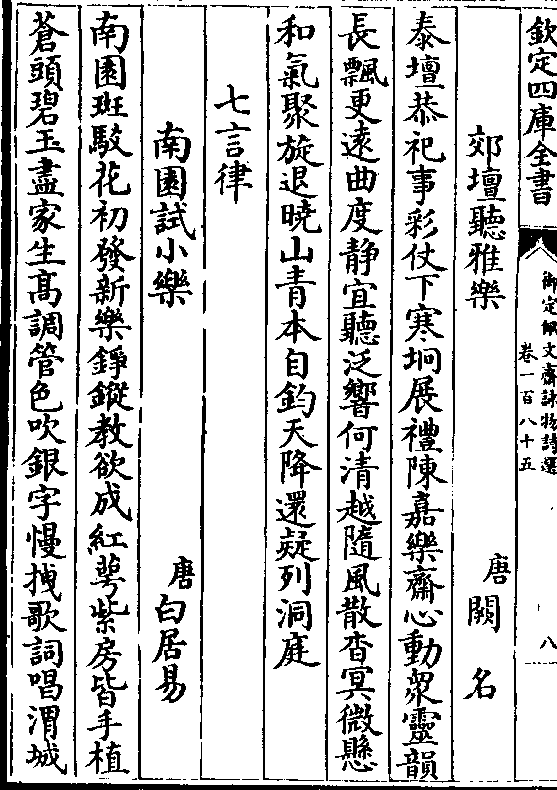 欽定四庫全書
御定佩文齋詠物詩選
卷一百八十五
八
郊壇聽雅樂 唐闕名
泰壇恭祀事彩仗下寒坰展禮陳嘉樂齋心動衆靈韻
長飄更遠曲度静宜聽泛響何清越隨風散杳冥微懸
和氣聚旋退曉山青本自鈞天降還疑列洞庭
七言律
南園試小樂 唐白居易
南園班駁花初發新樂錚鏦教欲成紅萼紫房皆手植
蒼頭碧玉盡家生髙調管色吹銀字慢拽歌詞唱渭城